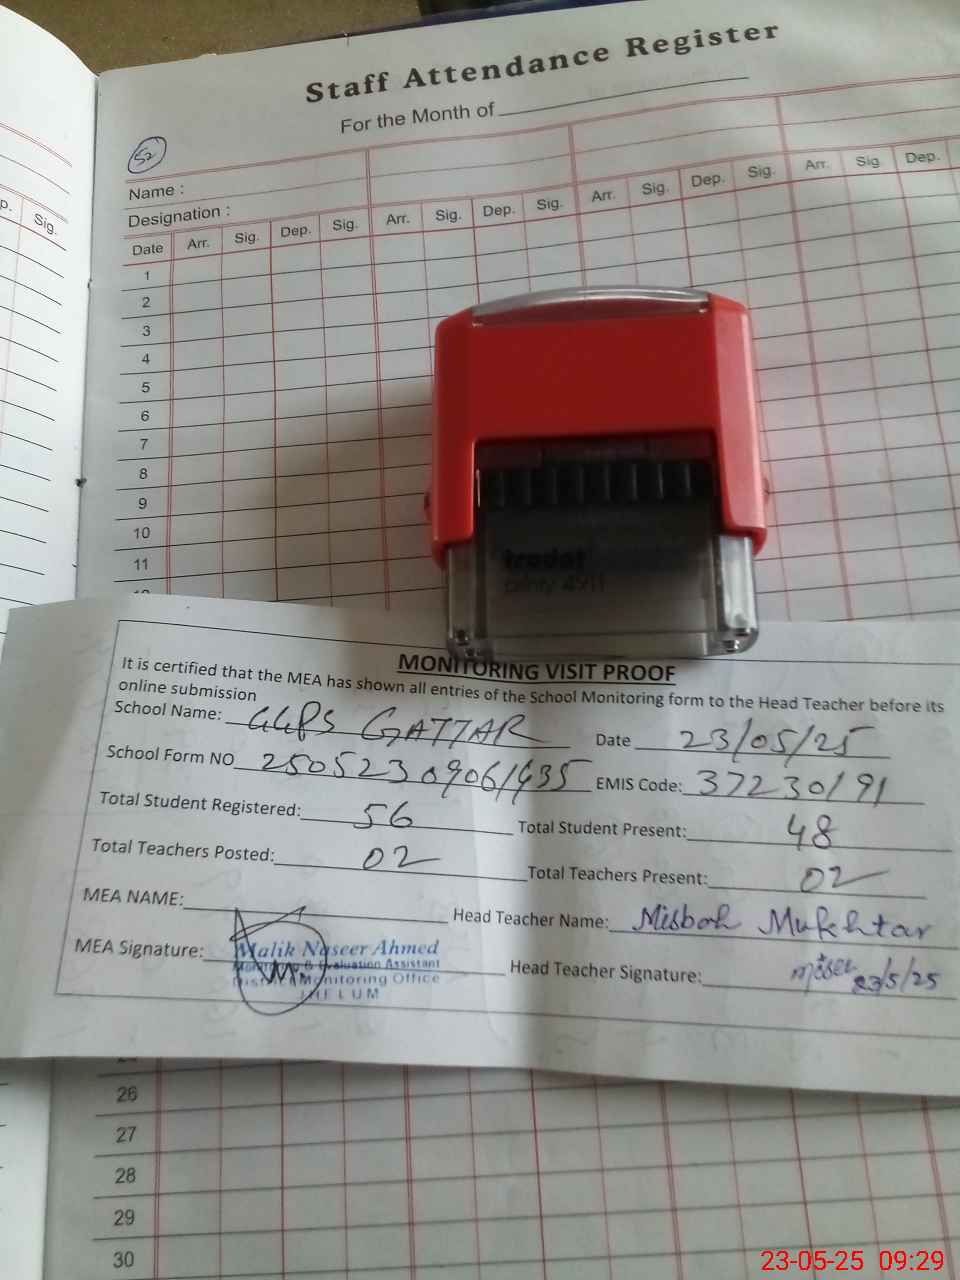 Staff Attendance Register
For the Month of
52
Name :
Designation :
p. Sig.
Date Arr. Sig. Dep. Sig. Arr. Sig. Dep. Sig. Arr. Sig. Dep. Sig. Arr. Sig. Dep.
1
2
3
4
5
6
7
8
9
10
11
trodat
printy 4911
MONITORING VISIT PROOF
It is certified that the MEA has shown all entries of the School Monitoring form to the Head Teacher before its
online submission
School Name: GGPS GATTAR Date 23/05/25
School Form NO 25052309061435 EMIS Code: 37230191
Total Student Registered: 56 Total Student Present: 48
Total Teachers Posted: 02 Total Teachers Present: 02
MEA NAME: Head Teacher Name: Misbah Mukhtar
MEA Signature: Malik Naseer Ahmed Head Teacher Signature: 23/5/25
Monitoring & Evaluation Assistant
District Monitoring Office
JHELUM
26
27
28
29
30
23-05-25 09:29